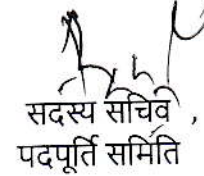 सदस्य सचिव ,
पदपूर्ति समिति